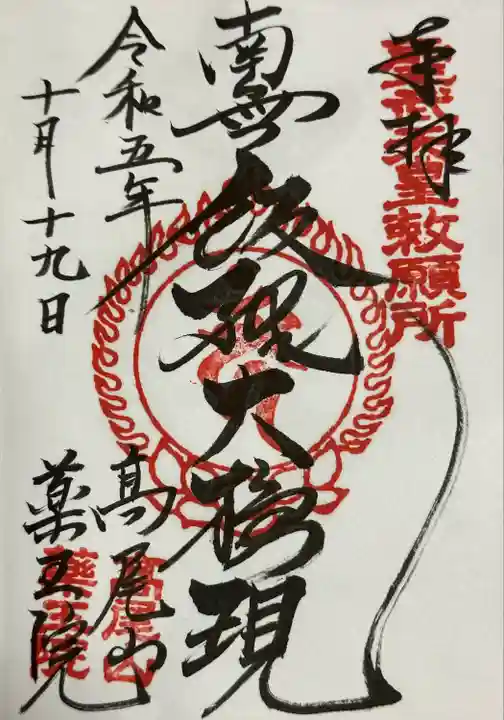 奉拝
聖武天皇敕願所
南無飯縄大権現
令和五年
十月十九日
髙尾山
薬王院
髙尾山
藥王院